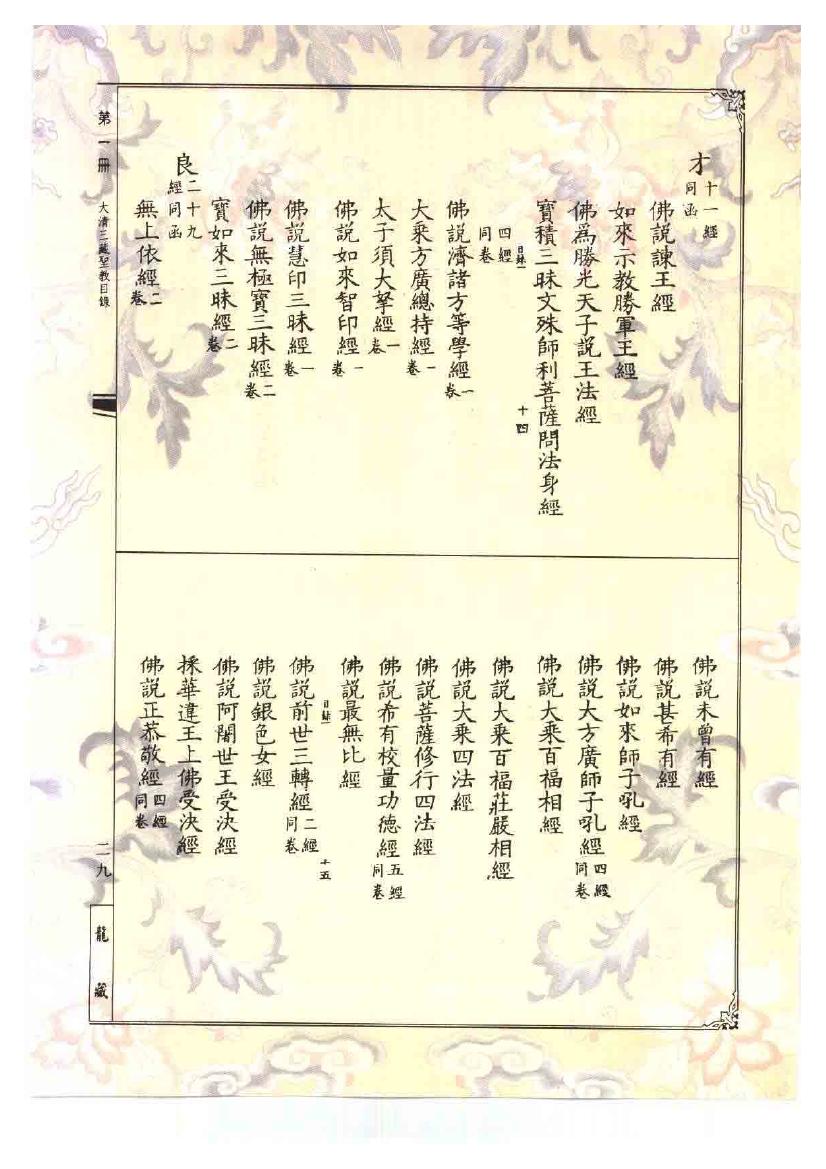 才 十一經同函
佛説諫王經
如來示教勝軍王經
佛爲勝光天子説王法經
寶積三昧文殊師利菩薩問法身經
四經同卷
目錄一
十四
佛説濟諸方等學經一卷
大乘方廣總持經一卷
太子須大拏經一卷
佛説如來智印經一卷
佛説慧印三昧經一卷
佛説無極寶三昧經二卷
寶如來三昧經二卷
良 二十九經同函
無上依經二卷
佛説未曾有經
佛説甚希有經
佛説如來師子吼經
佛説大方廣師子吼經四經同卷
佛説大乘百福相經
佛説大乘百福莊嚴相經
佛説大乘四法經
佛説菩薩修行四法經
佛説希有校量功德經五經同卷
佛説最無比經
目錄一
十五
佛説前世三轉經二經同卷
佛説銀色女經
佛説阿闍世王受決經
採華違王上佛受決經
佛説正恭敬經四經同卷
第一冊 大清三藏聖教目錄
二九
龍藏